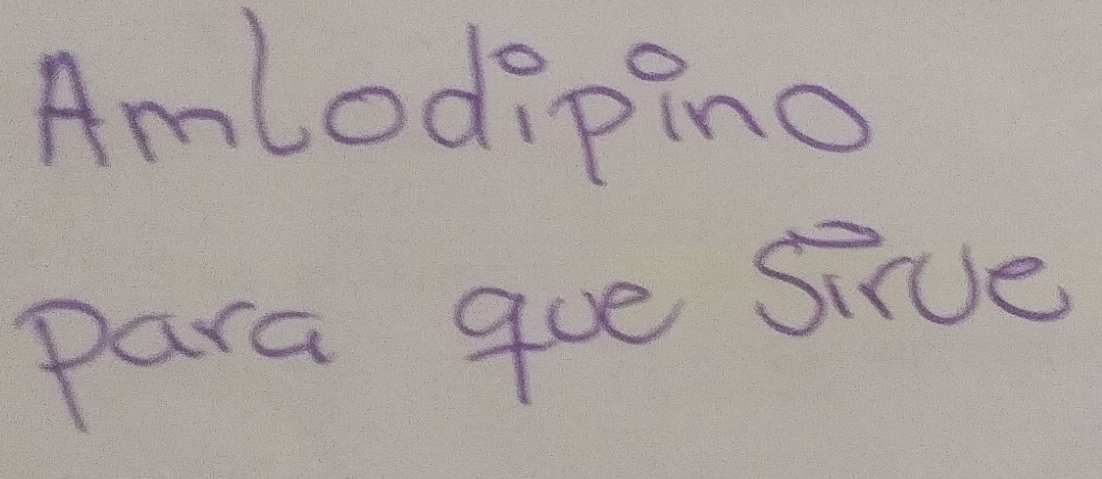 Amlodipino
para que sirve